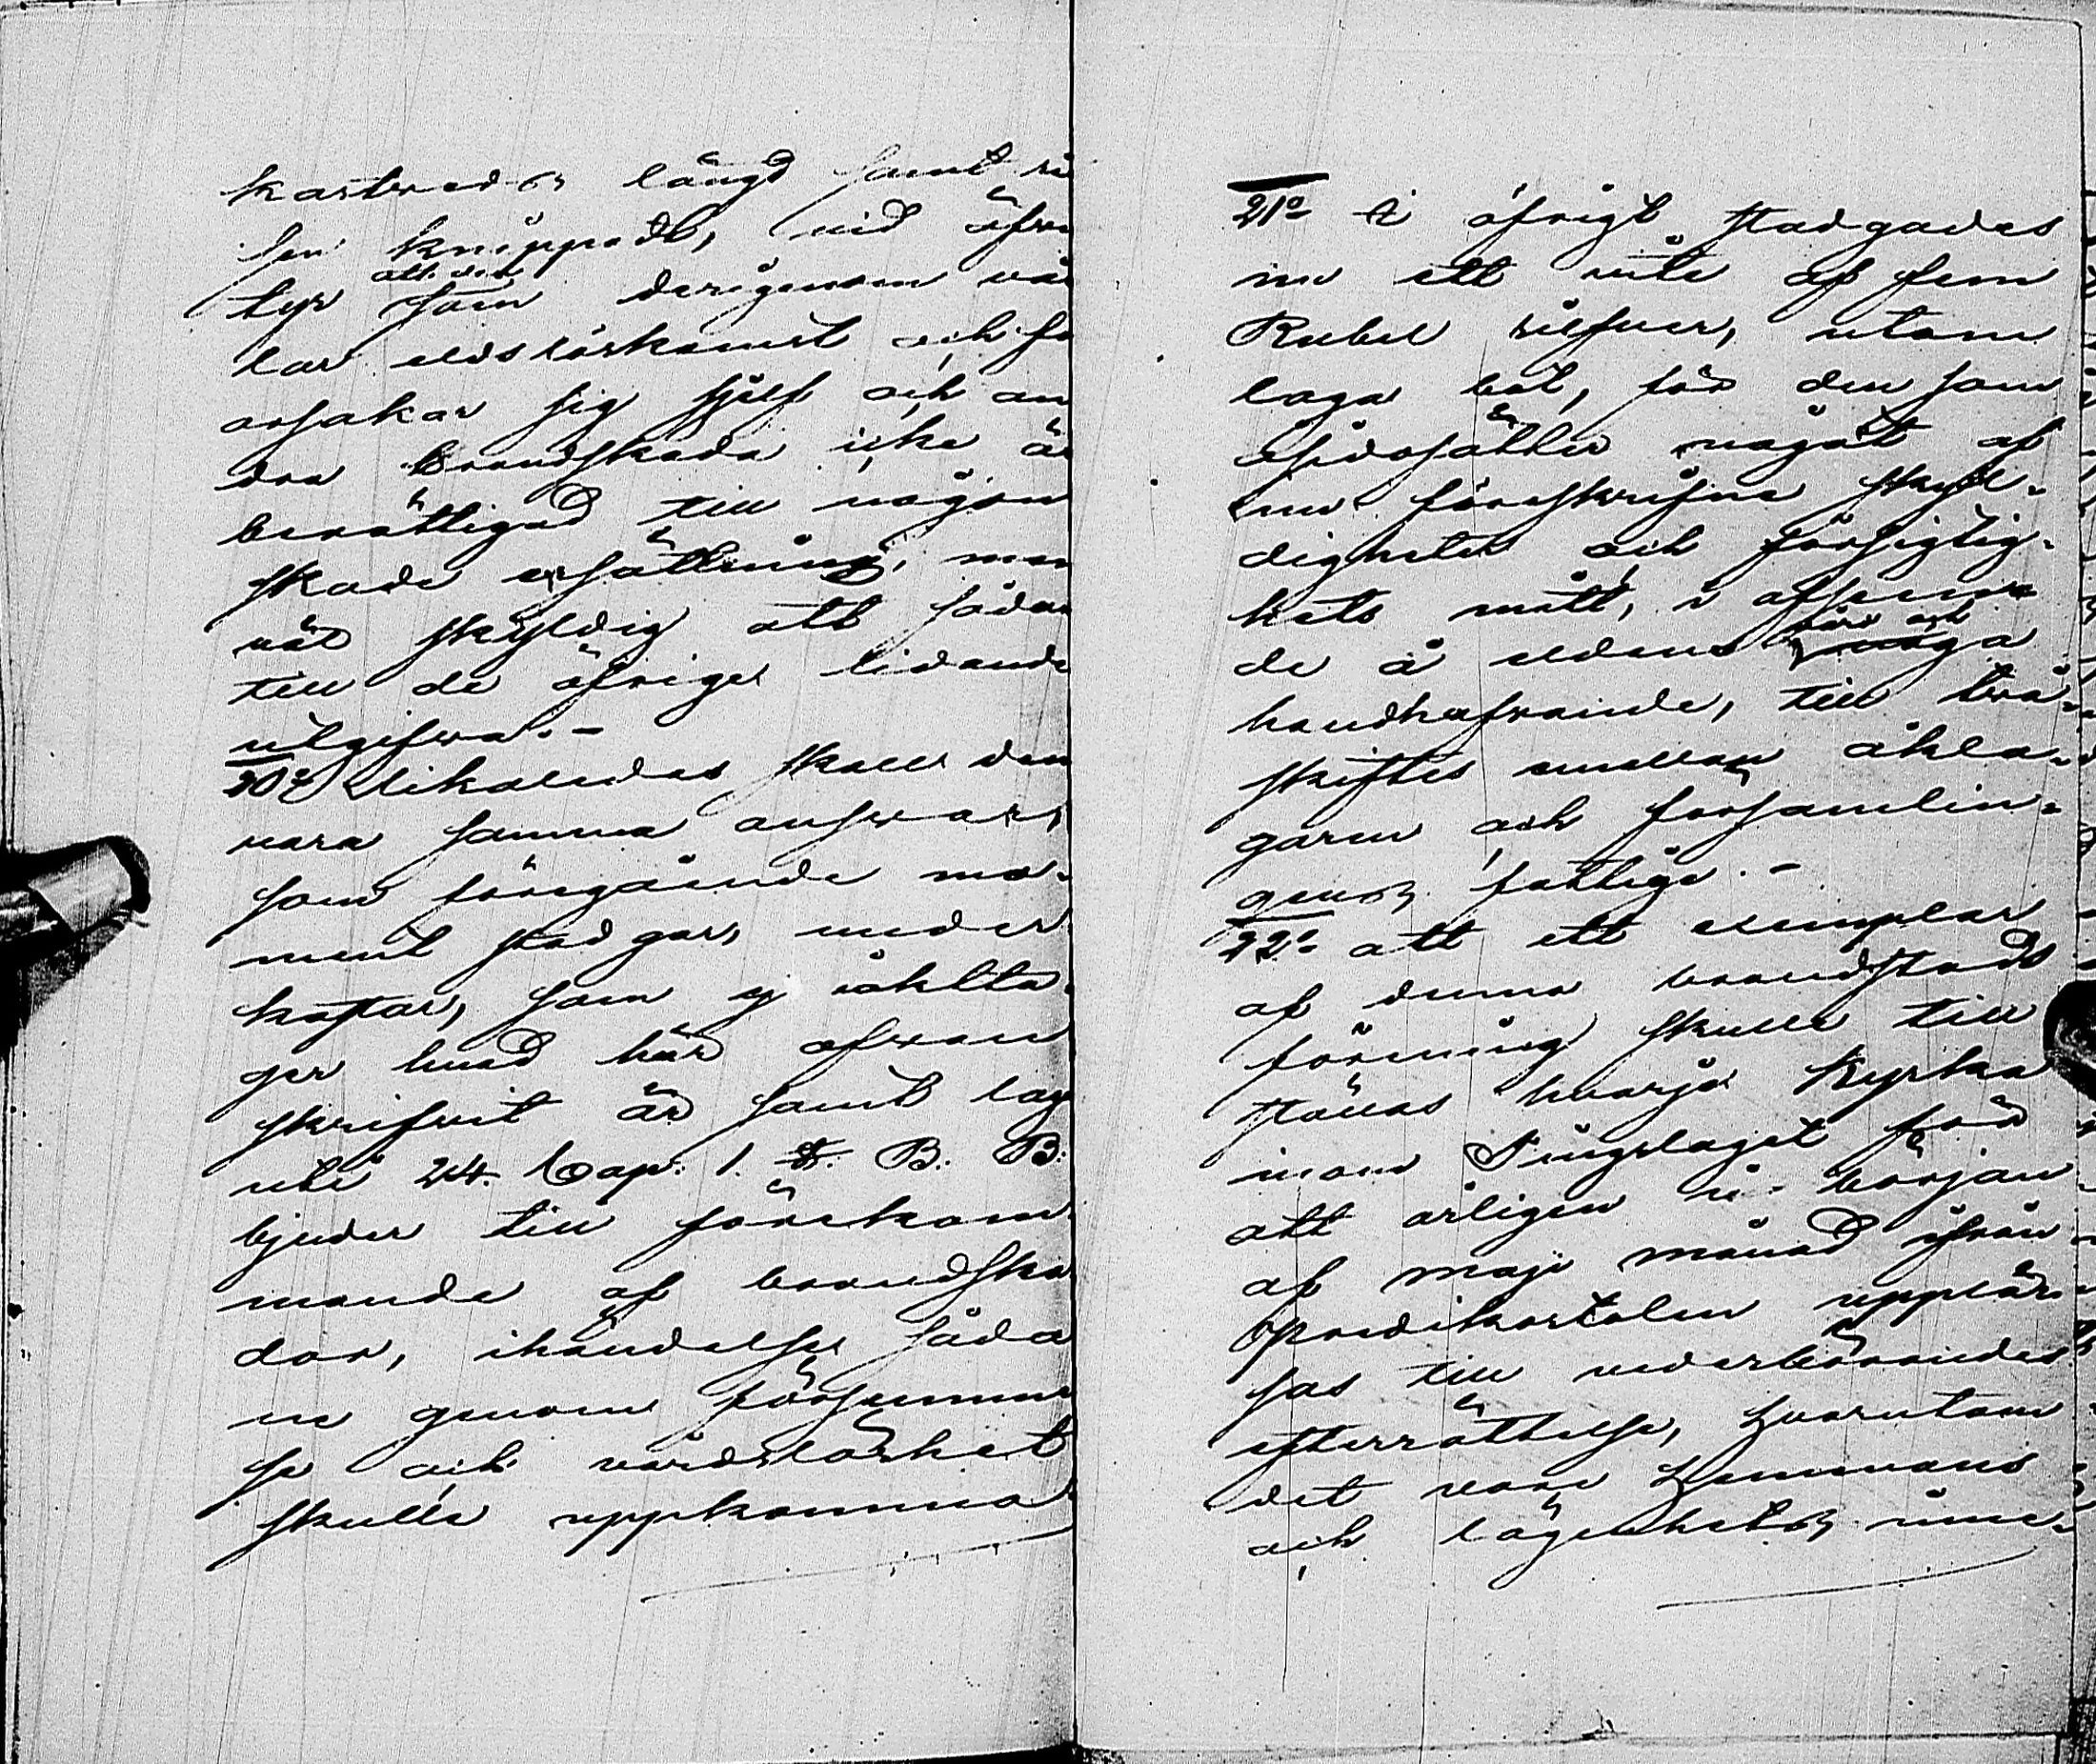 kastveds längd samt ri
sen knippadt, vid äfven
att den
tyr som derigenom vål
lar eldslöskomst och för
orsakar sig sjelf och an
dra brandskada icke är
berättigad till någon
skade ersättning, men
väl skyldig att sådan
till de öfriga lidande
utgifva. -
20o Likaledes skall den
vara samma answar,
som föregående mo-
ment stadgar, under
kastad, som ej iaktta
ger hvad här ofvan
skrifvit är samt lag
uti 24. Cap. 1. §. B. B.
bjuder till förekom
mande af brandska
dor, ihändelse såda
ne genom försumme
se och vårdslöshet
skulle uppkomma
21o I öfrigt stadgades
nu ett vite af fem
Rubel silfver, utom
laga bot, för den som
åsidosätter något af
nu föreskrifne skyl-
digheter och försigtig-
hets mått, i afseen
de å eldens
handhafvande, till två-
skiftes emellan åkla-
garen och församlin-
gens fattige. -
22o att ett exemplar
af denna brandstods
förening skulle till
ställas hvarje Kyrka
inom Tingslaget för
att årligen i början
af maji månad ifrån
Predikostolen upplä-
sas till vederbörandes
efterrättelse, hvarutom
det vore hemmans
och lägenhets inne-